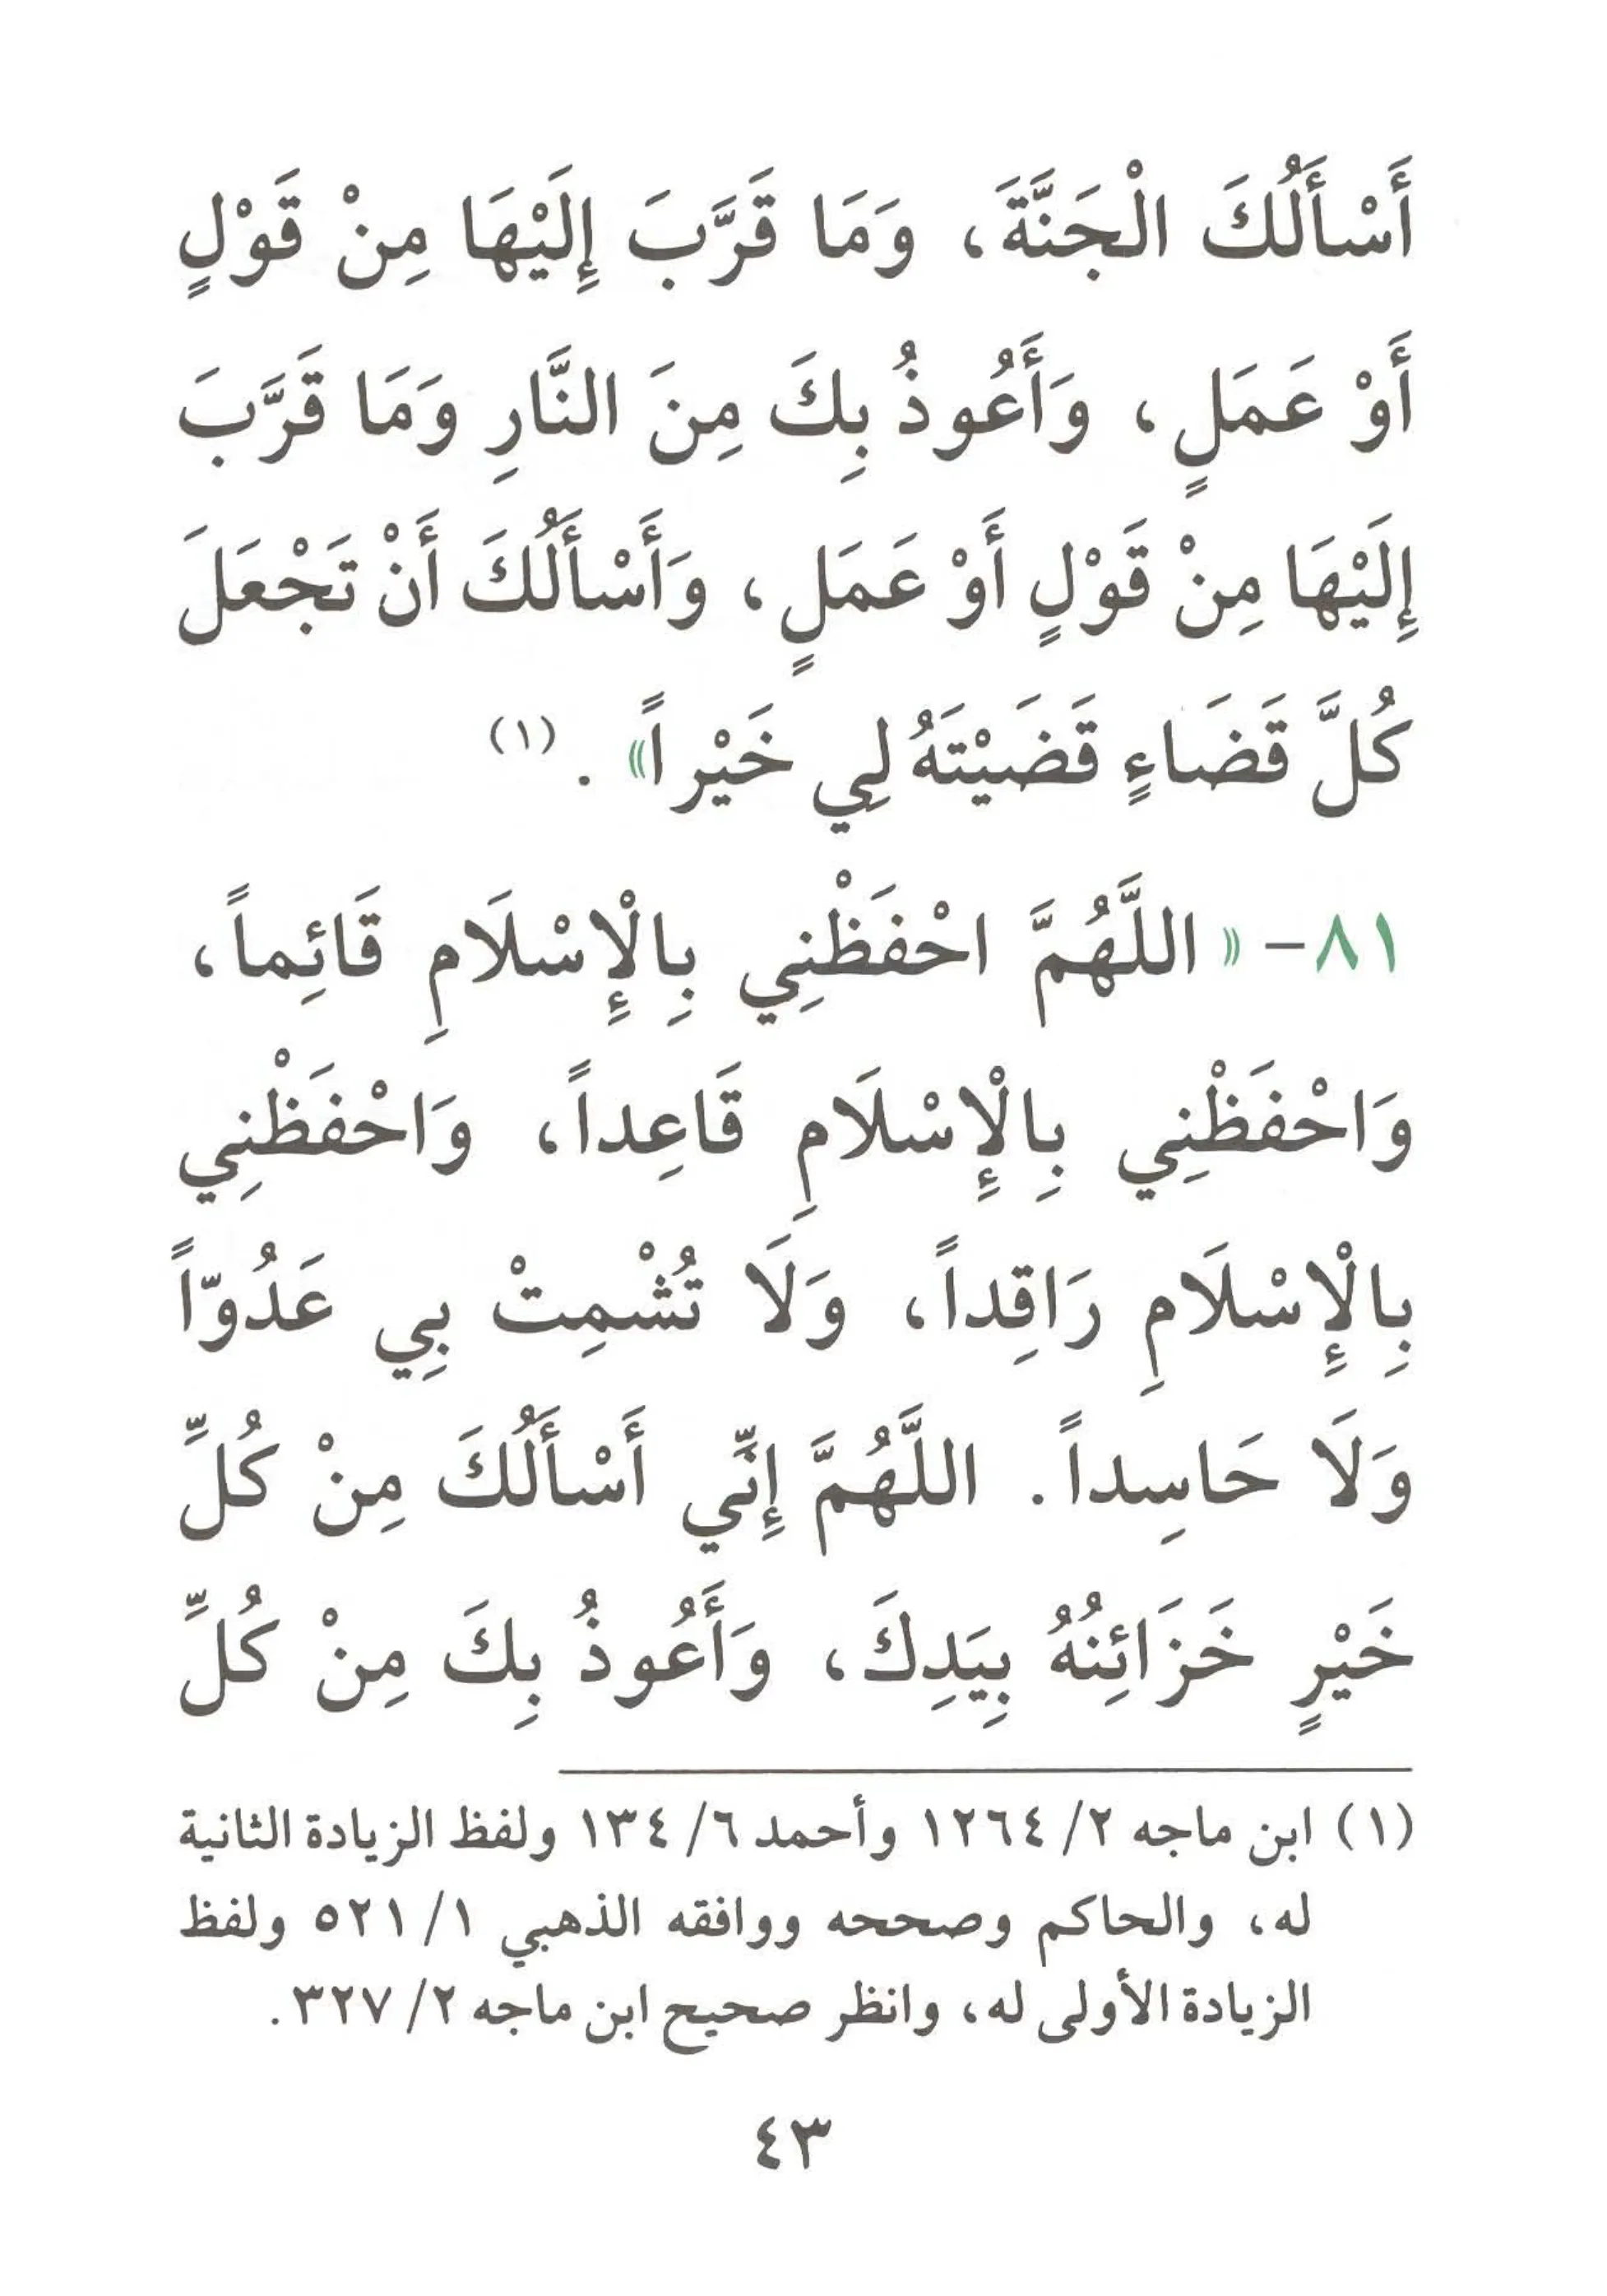 أَسْأَلُكَ الْجَنَّةَ، وَمَا قَرَّبَ إِلَيْهَا مِنْ قَوْلٍ
أَوْ عَمَلٍ، وَأَعُوذُ بِكَ مِنَ النَّارِ وَمَا قَرَّبَ
إِلَيْهَا مِنْ قَوْلٍ أَوْ عَمَلٍ، وَأَسْأَلُكَ أَنْ تَجْعَلَ
كُلَّ قَضَاءٍ قَضَيْتَهُ لِي خَيْراً» . (١)
٨١- « اللَّهُمَّ احْفَظْنِي بِالْإِسْلَامِ قَائِماً،
وَاحْفَظْنِي بِالْإِسْلَامِ قَاعِداً، وَاحْفَظْنِي
بِالْإِسْلَامِ رَاقِداً، وَلَا تُشْمِتْ بِي عَدُوّاً
وَلَا حَاسِداً. اللَّهُمَّ إِنِّي أَسْأَلُكَ مِنْ كُلِّ
خَيْرٍ خَزَائِنُهُ بِيَدِكَ، وَأَعُوذُ بِكَ مِنْ كُلِّ
(١) ابن ماجه ٢/ ١٢٦٤ وأحمد ٦/ ١٣٤ ولفظ الزيادة الثانية
له، والحاكم وصححه ووافقه الذهبي ١/ ٥٢١ ولفظ
الزيادة الأولى له، وانظر صحيح ابن ماجه ٢/ ٣٢٧.
٤٣